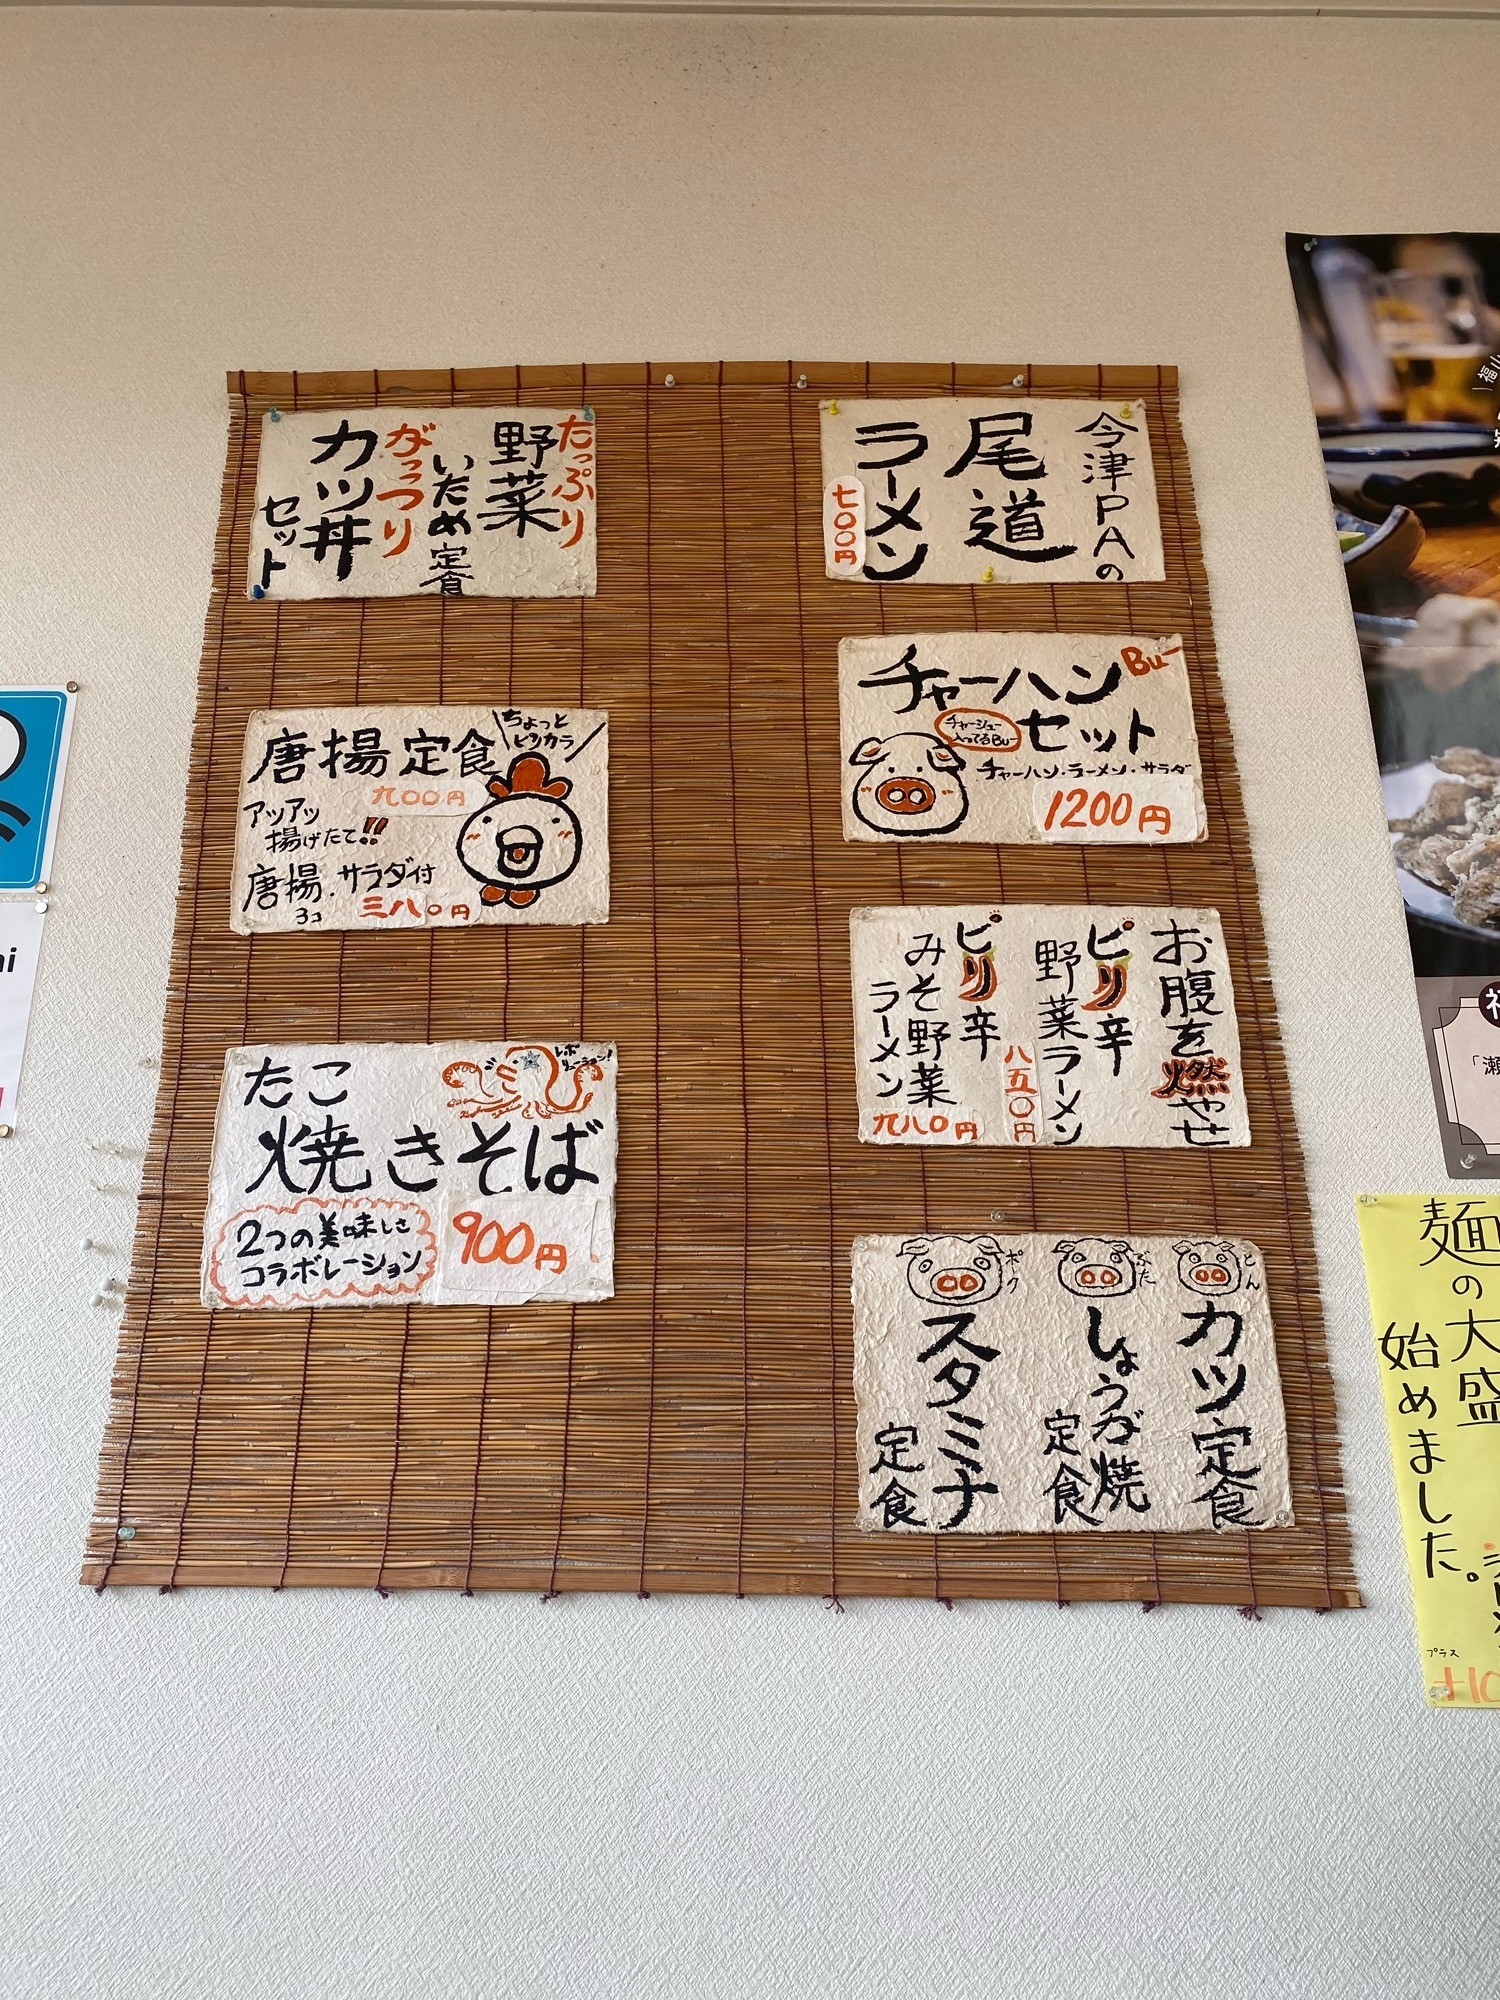 今津PAの
尾道
ラーメン
七〇〇円
Bu-
チャーハン
セット
チャーシュー
入ってるBu-
チャーハン・ラーメン・サラダ
1200円
お腹を燃やせ
ピリ辛
野菜ラーメン
八五〇円
ピリ辛
みそ野菜
ラーメン
九八〇円
とん
カツ定食
ぶた
しょうが焼
定食
ポーク
スタミナ
定食
たっぷり
野菜
いため定食
がっつり
カツ丼
セット
唐揚定食
ちょっと
ピンカラ
九〇〇円
アツアツ
揚げたて!!
唐揚・サラダ付
3コ
三八〇円
たこ
焼きそば
レボ
リューション!
2つの美味しさ
コラボレーション
900円
麺の大盛
始めました。
プラス